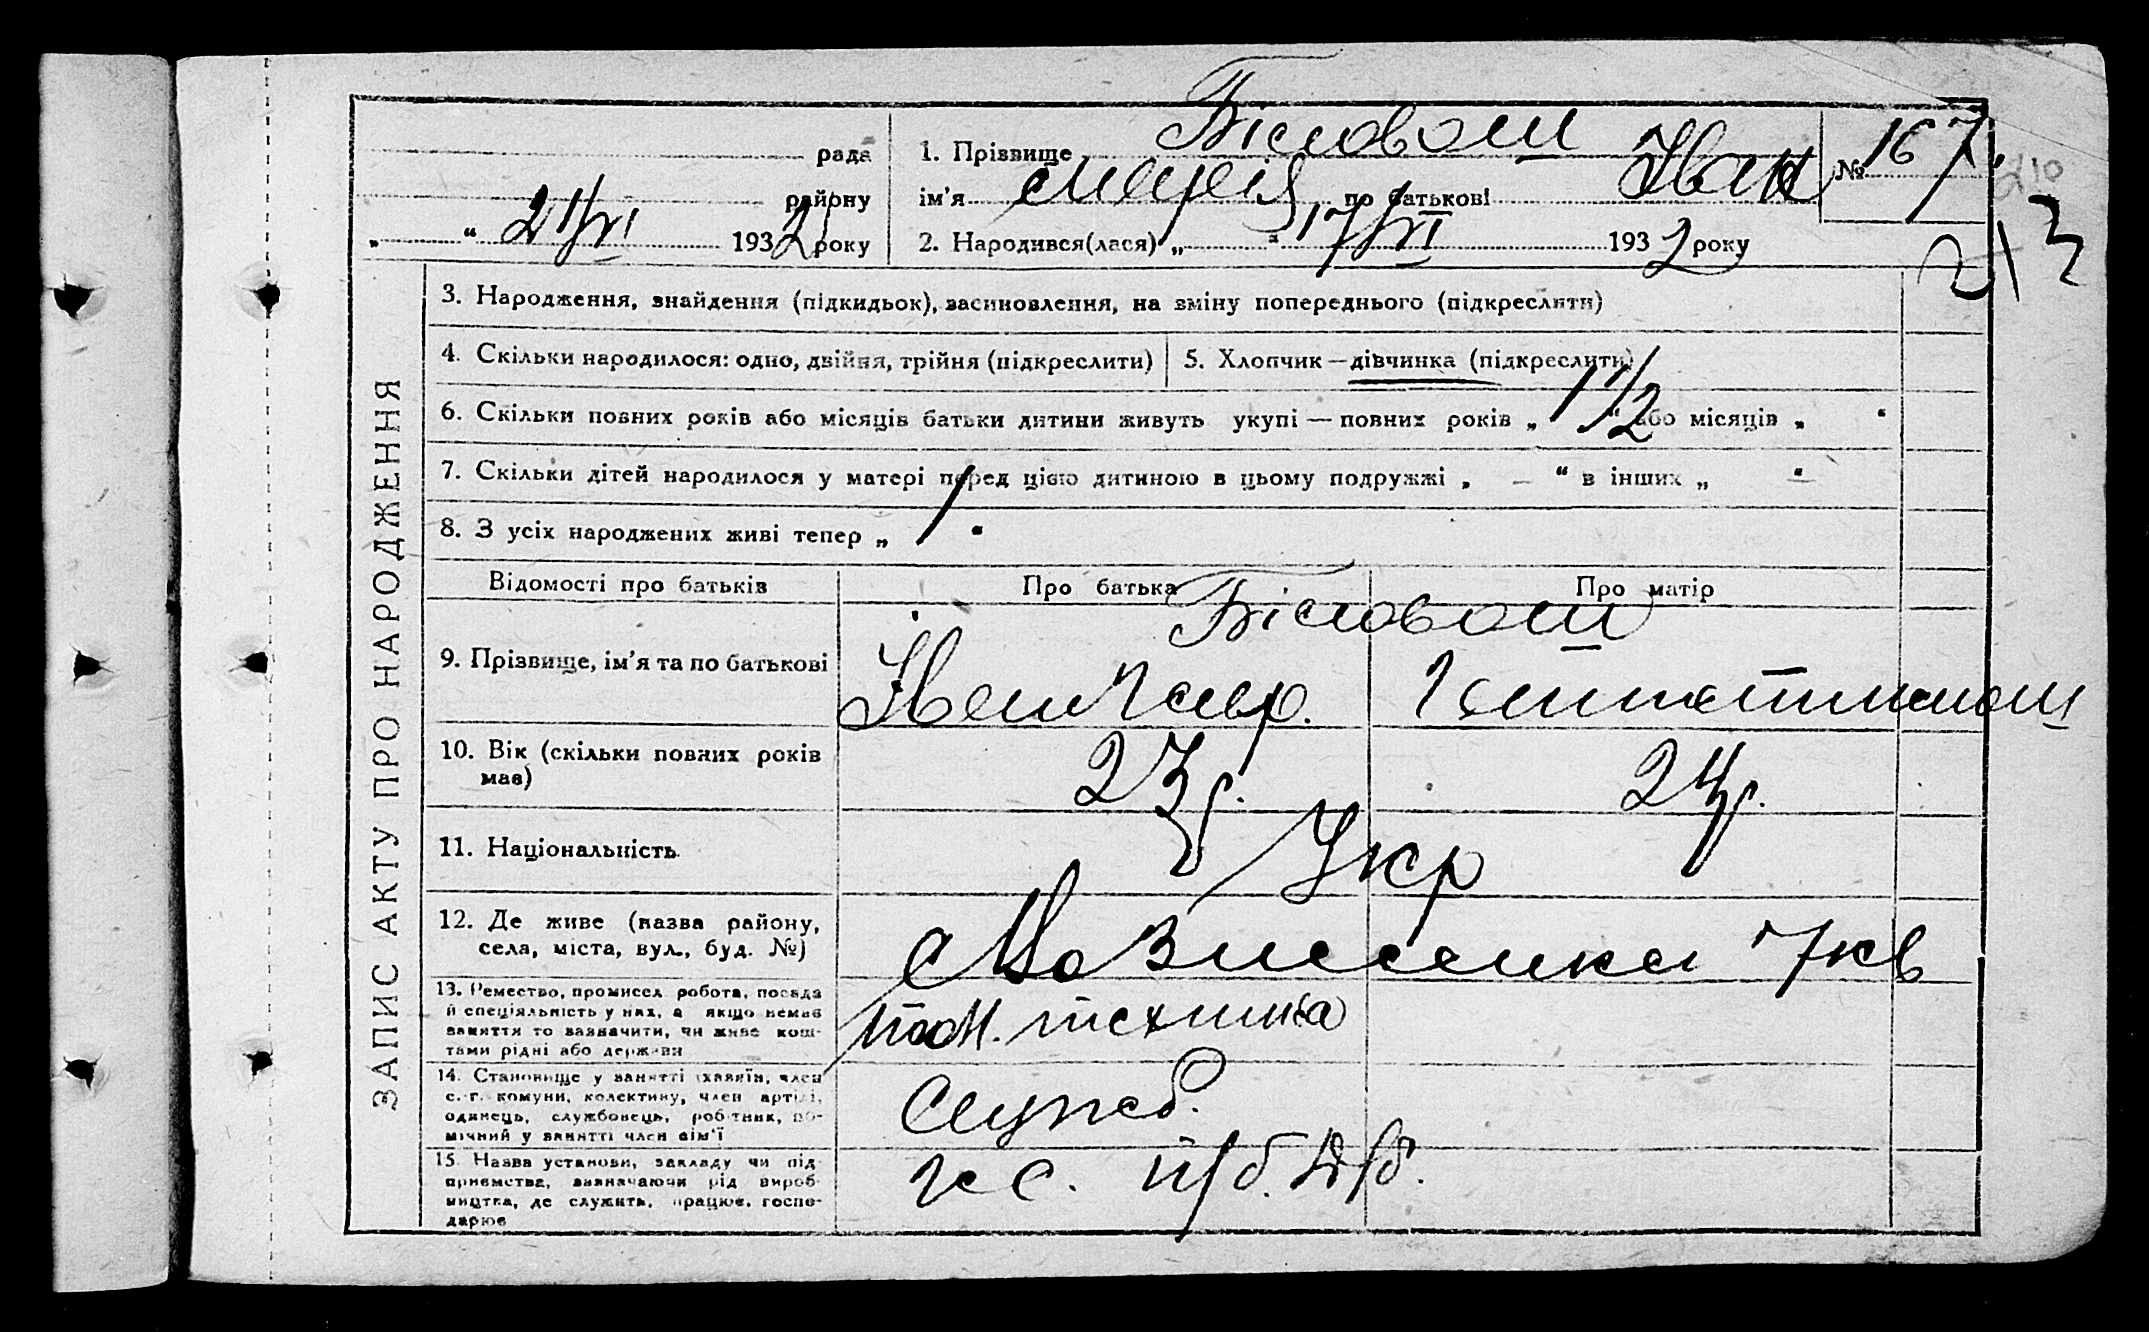 рада
1. Прізвище
№ 167.
району
ім'я Марія по батькові Іван
„ “ 21/VI 1932 року
2. Народився(лася) „ “ 17/VI 1932 року
213
ЗАПИС АКТУ ПРО НАРОДЖЕННЯ
3. Народження, знайдення (підкидьок), засиновлення, на зміну попереднього (підкреслити)
4. Скільки народилося: одно, двійня, трійня (підкреслити)
5. Хлопчик — дівчинка (підкреслити)
6. Скільки повних років або місяців батьки дитини живуть укупі — повних років „ 1 1/2 “ або місяців „ “
7. Скільки дітей народилося у матері перед цією дитиною в цьому подружжі „ — “ в інших „ — “
8. З усіх народжених живі тепер „ 1 “
Відомості про батьків
Про батька
Про матір
9. Прізвище, ім'я та по батькові
Іван
10. Вік (скільки повних років
має)
23 р.
24 р.
11. Національність
Укр
12. Де живе (назва району,
села, міста, вул., буд. №)
7 кв
13. Ремество, промисел робота, посада
й спеціяльність у них, а якщо немає
заняття то зазначити, чи живе кош-
тами рідні або держави
техніка
14. Становище у занятті (хазяїн, член
с.-г. комуни, колективу, член артілі,
одинець, службовець, робітник, по-
мічний у занятті член сім'ї
Служб.
15. Назва установи, закладу чи під-
приємства, зазначаючи рід вироб-
ництва, де служить, працює, госпо-
дарює